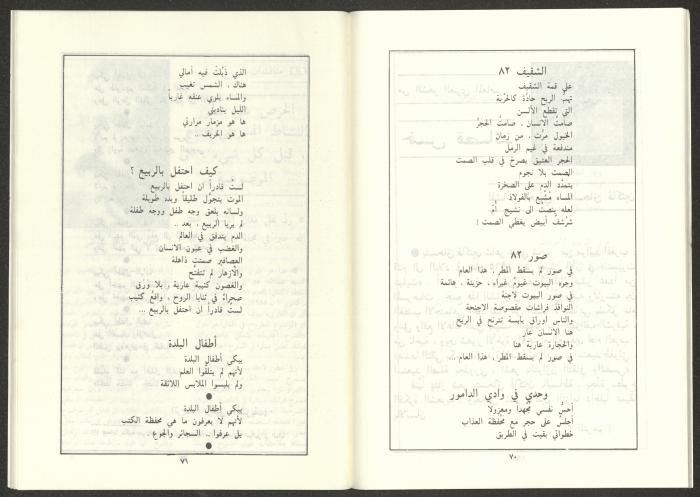 الشقيف ٨٢
على قمة الشقيف
تهبّ الريح حادّة كالحربة
التي تقطع الألسن
صامتٌ الانسان . صامتٌ الحجرُ
الخيول مرّت ، من زمان
مندفعة في غيم الرمل
الحجر العتيق يصرخ في قلب الصمت
الصمت بلا نجوم
يتمدّد الدم على الصخرة
المساء مُشبعٌ بالفولاذ
لعله ينصتُ الى نشيج أمّ
شرشف أبيض يغطي الصمت !
صور ٨٢
في صور لم يسقط المطر ، هذا العام
وجوه البيوت غيومٌ غبراء ، حزينة ، هائمة
في صور البيوت لاجئة
النوافذ فراشات مقصوصة الاجنحة
والناس أوراق يابسة تترنح في الريح
هنا الانسان عارٍ
والحجارة عارية هنا
في صور لم يسقط المطر ، هذا العام ..
وحدي في وادي الدامور
أحسّ نفسي مُجهداً ومعزولا
أجلس على حجر مع محفظة العذاب
خطواتي بقيت في الطريق
٧٠
الذي ذَبُلت فيه آمالي
هناك ، الشمس تغيب
والمساء يلوي عنقه غارباً
الليل يناديني
ها هو مزمار مزارتي
ها هو الخريف ..
كيف احتفل بالربيع ؟
لستُ قادراً ان احتفل بالربيع
الموت يتجول طليقاً ويده طويلة
ولسانه يلعق وجه طفل ووجه طفلة
لم يرَيا الربيع ، بعد ..
الدم يتدفق في العالم
والغضب في عيون الانسان
العصافير صمتت ذاهلة
والأزهار لم تتفتّح
والغصون كئيبة عارية ، بلا ورق
صحراءٌ في ثنايا الروح ، واقعٌ كئيب
لستُ قادراً ان احتفل بالربيع ...
أطفال البلدة
يبكي أطفال البلدة
لأنهم لم يتلقّوا العلم
ولم يلبسوا الملابس اللائقة
●
يبكي أطفال البلدة
لأنهم لا يعرفون ما هي محفظة الكتب
بل عرفوا .. السجائر والجوع
●
٧١